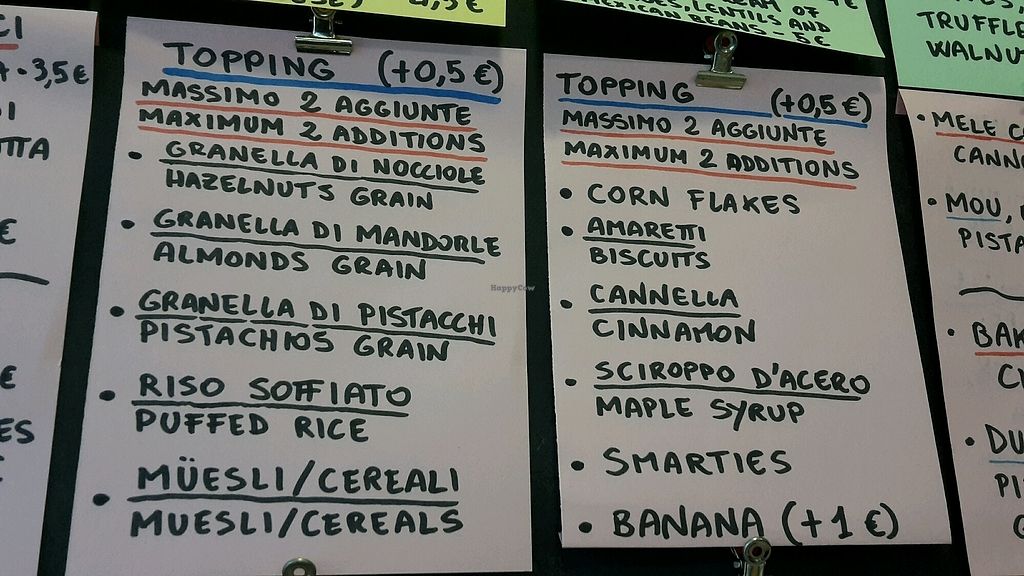 CI
- 3,5€
TTA
€
€
ES
4,5 €
TOPPING (+0,5 €)
MASSIMO 2 AGGIUNTE
MAXIMUM 2 ADDITIONS
• GRANELLA DI NOCCIOLE
HAZELNUTS GRAIN
• GRANELLA DI MANDORLE
ALMONDS GRAIN
• GRANELLA DI PISTACCHI
PISTACHIOS GRAIN
• RISO SOFFIATO
PUFFED RICE
• MÜESLI/CEREALI
MUESLI/CEREALS
CREAM OF
LENTILS AND
MEXICAN BEANS - 5€
TOPPING (+0,5 €)
MASSIMO 2 AGGIUNTE
MAXIMUM 2 ADDITIONS
• CORN FLAKES
• AMARETTI
BISCUITS
• CANNELLA
CINNAMON
• SCIROPPO D'ACERO
MAPLE SYRUP
• SMARTIES
• BANANA (+1 €)
HappyCow
TRUFFLE
WALNU
• MELE C
CANN
• MOU,
PISTA
• BAK
CI
• DU
PI